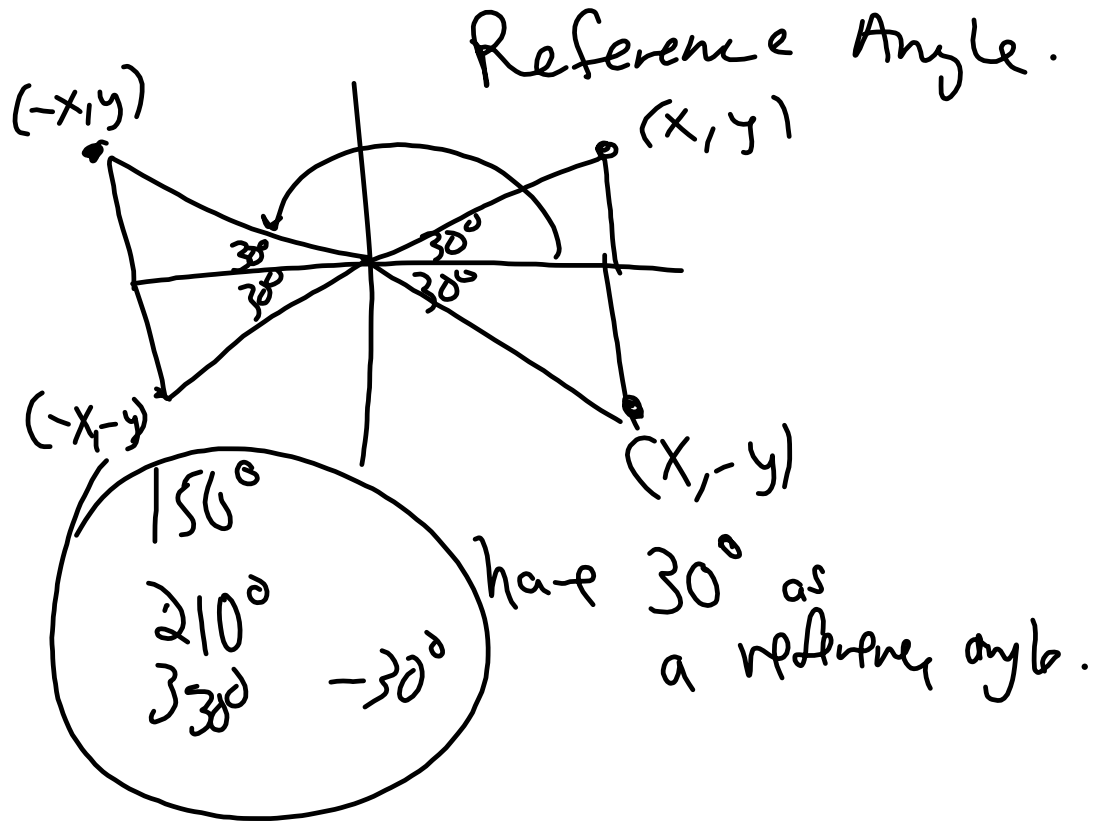 Reference Angle.
(-x, y)
(x, y)
30° 30°
30° 30°
(-x, -y)
(x, -y)
150°
210°
330° -30°
have 30° as
a reference angle.